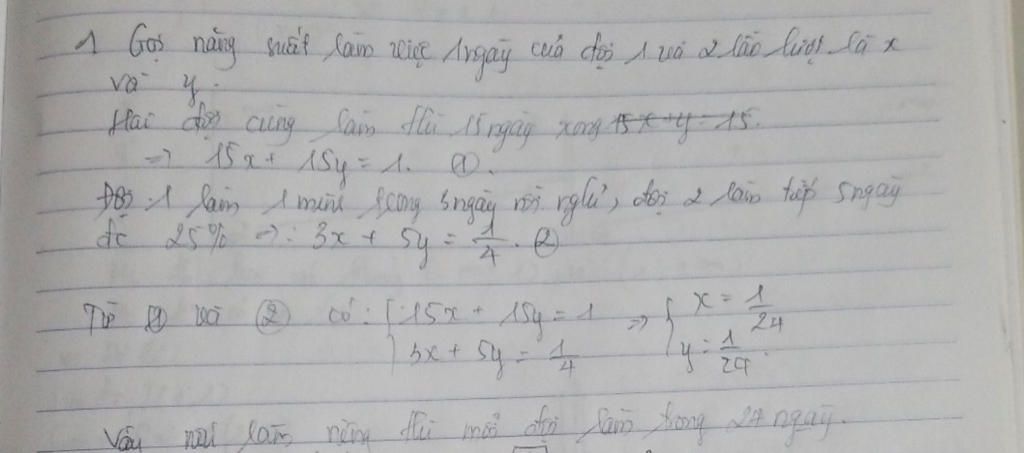 1 Gọi năng suất làm việc 1 ngày của đội 1 và 2 lần lượt là x
và y.
Hai đội cùng làm thì 15 ngày xong 15x+y=15.
=> 15x + 15y = 1. (1).
Đội 1 làm 1 mình trong 3 ngày rồi nghỉ, đội 2 làm tiếp 5 ngày
đc 25% => : 3x + 5y = 1/4. (2)
Từ (1) và (2) có : { 15x + 15y = 1 => { x = 1/24
3x + 5y = 1/4 y = 1/24.
Vậy làm riêng thì mỗi đội làm trong 24 ngày.